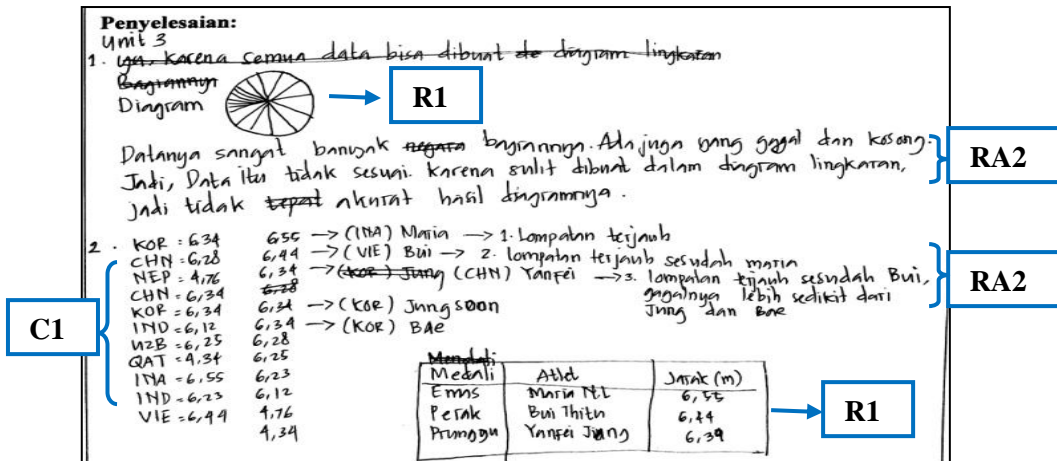 Penyelesaian:
Unit 3
1. iya, karena semua data bisa dibuat de diagram lingkaran
Bagiannya
Diagram
R1
Datanya sangat banyak negara bagiannya. Ada juga yang gagal dan kosong.
Jadi, Data itu tidak sesuai. karena sulit dibuat dalam diagram lingkaran,
jadi tidak tepat akurat hasil diagramnya.
RA2
2. KOR = 6,34
CHN = 6,28
NEP = 4,76
CHN = 6,34
KOR = 6,34
IND = 6,12
UZB = 6,25
QAT = 4,34
INA = 6,55
IND = 6,23
VIE = 6,44
C1
6,55 → (INA) Maria → 1. Lompatan terjauh
6,44 → (VIE) Bui → 2. lompatan terjauh sesudah maria
6,34 → (KOR) Jung (CHN) Yanfei → 3. lompatan terjauh sesudah Bui,
gagalnya lebih sedikit dari
Jung dan Bae
6,28
6,34 → (KOR) Jungsoon
6,34 → (KOR) BAE
6,28
6,25
6,23
6,12
4,76
4,34
RA2
Medali Atlet Jarak (m)
Emas Maria N.L 6,55
Perak Bui Thithu 6,44
Prunggu Yanfei Jiang 6,34
R1